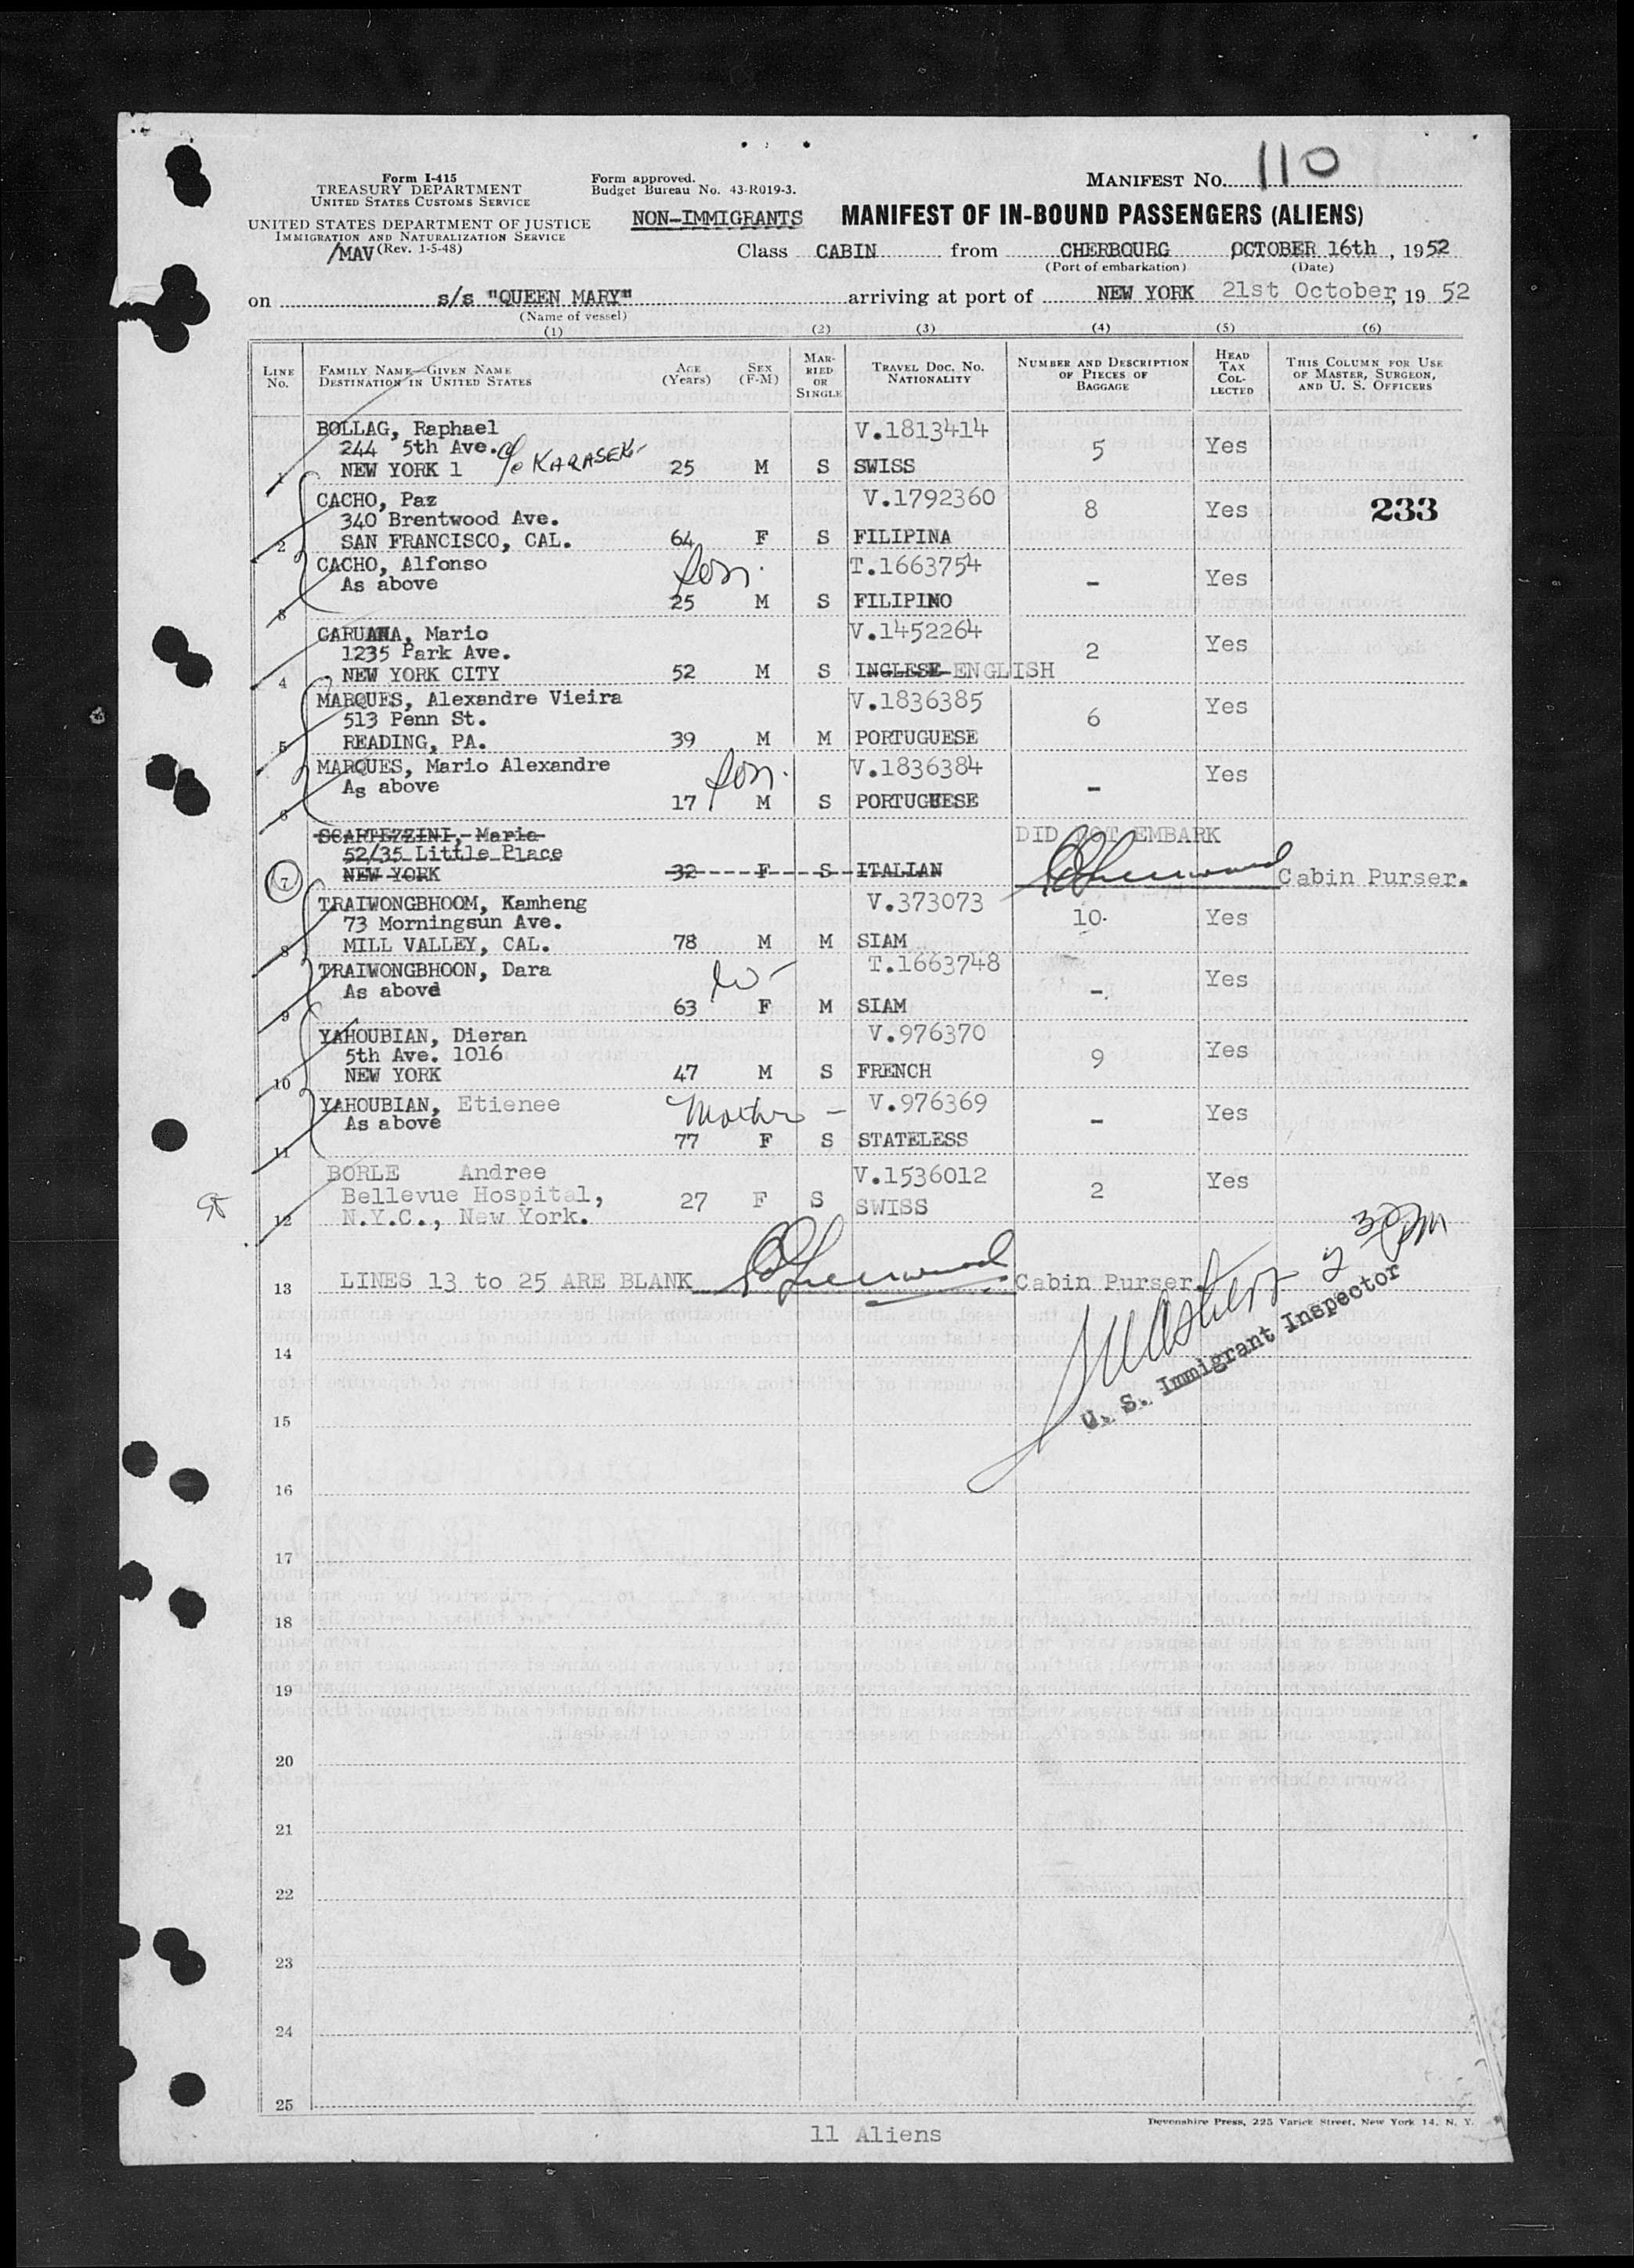 Form I-415
TREASURY DEPARTMENT
UNITED STATES CUSTOMS SERVICE
UNITED STATES DEPARTMENT OF JUSTICE
IMMIGRATION AND NATURALIZATION SERVICE
/MAV (Rev. 1-5-48)
Form approved.
Budget Bureau No. 43-R019-3.
MANIFEST No. 110
NON-IMMIGRANTS MANIFEST OF IN-BOUND PASSENGERS (ALIENS)
Class CABIN from CHERBOURG OCTOBER 16th, 1952
(Port of embarkation) (Date)
on s/s "QUEEN MARY" arriving at port of NEW YORK 21st October, 1952
(Name of vessel)
(1) (2) (3) (4) (5) (6)
LINE No. FAMILY NAME—GIVEN NAME DESTINATION IN UNITED STATES AGE (Years) SEX (F-M) MARRIED OR SINGLE TRAVEL DOC. NO. NATIONALITY NUMBER AND DESCRIPTION OF PIECES OF BAGGAGE HEAD TAX COLLECTED THIS COLUMN FOR USE OF MASTER, SURGEON, AND U. S. OFFICERS
BOLLAG, Raphael V.1813414
244 5th Ave. c/o KARASEK 5 Yes
1 NEW YORK 1 25 M S SWISS
CACHO, Paz V.1792360
340 Brentwood Ave. 8 Yes 233
2 SAN FRANCISCO, CAL. 64 F S FILIPINA
CACHO, Alfonso T.1663754
As above Son. - Yes
3 25 M S FILIPINO
CARUANA, Mario V.1452264
1235 Park Ave. 2 Yes
4 NEW YORK CITY 52 M S INGLESE ENGLISH
MARQUES, Alexandre Vieira V.1836385
513 Penn St. 6 Yes
5 READING, PA. 39 M M PORTUGUESE
MARQUES, Mario Alexandre V.1836384
As above Son. - Yes
6 17 M S PORTUGUESE
SCARTEZZINI, Maria DID NOT EMBARK
52/35 Little Place
7 NEW YORK 32 F S ITALIAN Cabin Purser.
TRAIWONGBHOOM, Kamheng V.373073
73 Morningsun Ave. 10 Yes
8 MILL VALLEY, CAL. 78 M M SIAM
TRAIWONGBHOON, Dara T.1663748
As above w - - Yes
9 63 F M SIAM
YAHOUBIAN, Dieran V.976370
5th Ave. 1016 9 Yes
10 NEW YORK 47 M S FRENCH
YAHOUBIAN, Etienee Mother - V.976369
As above - Yes
11 77 F S STATELESS
BORLE Andree V.1536012
Bellevue Hospital, 27 F S 2 Yes
12 N.Y.C., New York. SWISS
13 LINES 13 to 25 ARE BLANK Cabin Purser.
U. S. Immigrant Inspector
14
15
16
17
18
19
20
21
22
23
24
25
Devonshire Press, 225 Varick Street, New York 14, N. Y.
11 Aliens